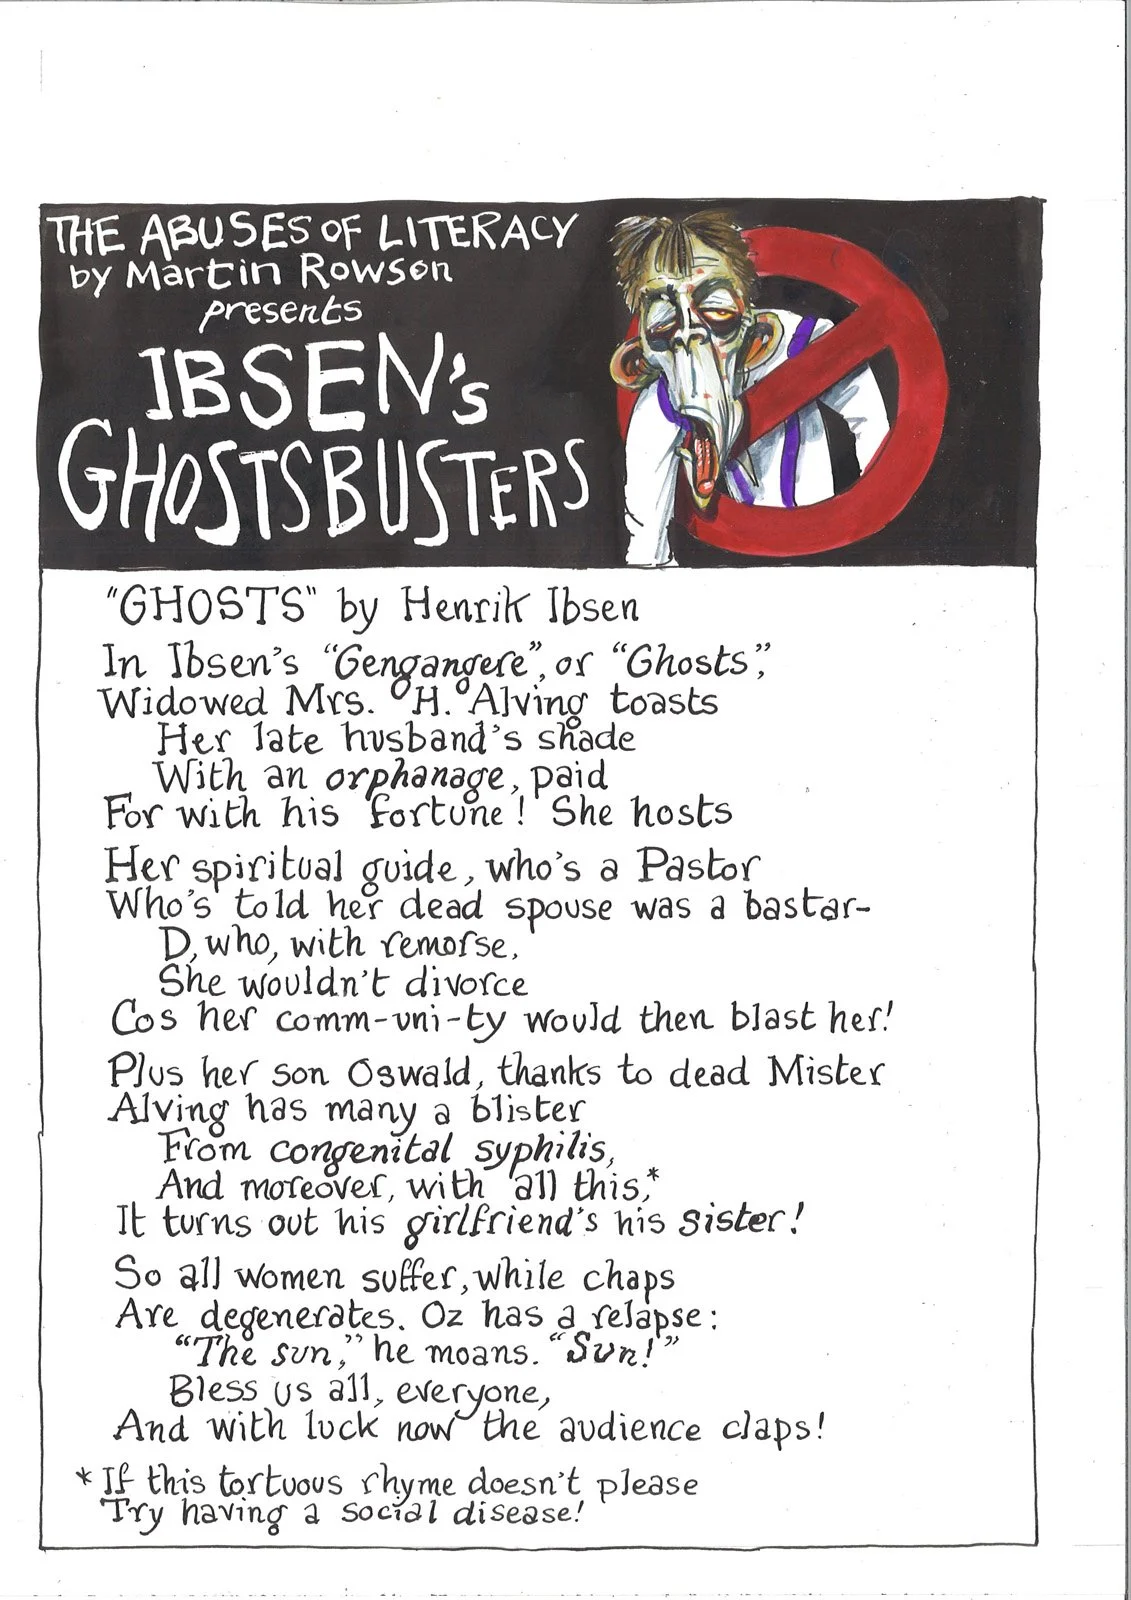 THE ABUSES OF LITERACY
by Martin Rowson
presents
IBSEN's
GHOSTSBUSTERS
"GHOSTS" by Henrik Ibsen
In Ibsen's "Gengangere", or "Ghosts",
Widowed Mrs. H. Alving toasts
Her late husband's shade
With an orphanage, paid
For with his fortune! She hosts
Her spiritual guide, who's a Pastor
Who's told her dead spouse was a bastar-
D, who, with remorse,
She wouldn't divorce
Cos her comm-uni-ty would then blast her!
Plus her son Oswald, thanks to dead Mister
Alving has many a blister
From congenital syphilis,
And moreover, with all this,*
It turns out his girlfriend's his sister!
So all women suffer, while chaps
Are degenerates. Oz has a relapse:
"The sun," he moans. "Sun!"
Bless us all, everyone,
And with luck now the audience claps!
* If this tortuous rhyme doesn't please
Try having a social disease!